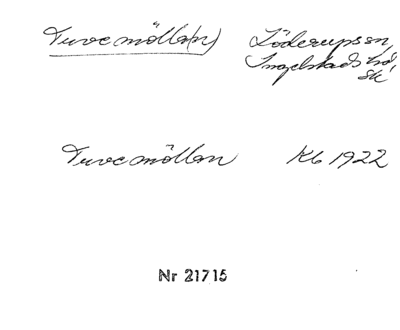 Tuvemölla(n) Löderups sn,
Ingelstads hd,
Sk
Tuvemöllan Kb 1922
Nr 21715